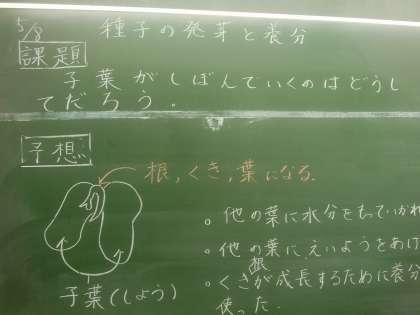 5/8 種子の発芽と養分
課題
子葉がしぼんでいくのはどうし
てだろう。
予想
根,くき,葉になる.
。他の葉に水分をもっていかれ
。他の葉に,えいようをあげ
根
。くきが成長するために養分
使った.
子葉(しよう)